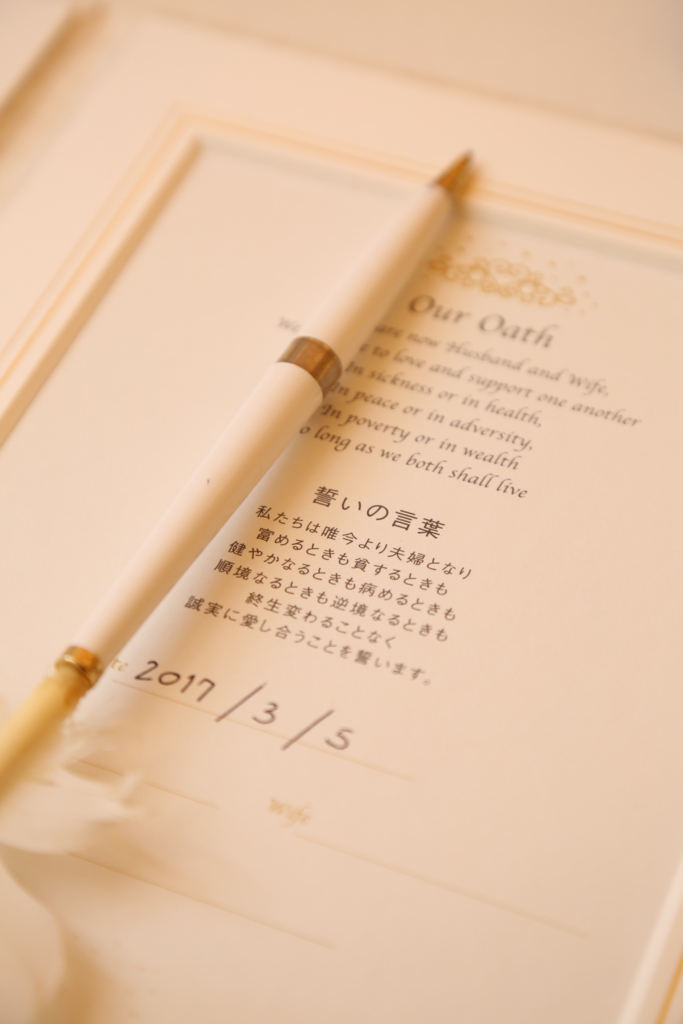 Our Oath
We are now Husband and Wife,
to love and support one another
In sickness or in health,
In peace or in adversity,
In poverty or in wealth
long as we both shall live
誓いの言葉
私たちは唯今より夫婦となり
富めるときも貧するときも
健やかなるときも病めるときも
順境なるときも逆境なるときも
終生変わることなく
誠実に愛し合うことを誓います。
2017/3/5
Wife